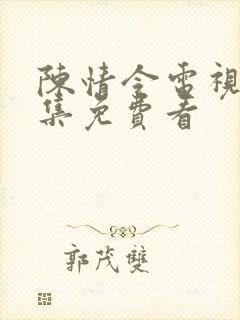 陳情令電視
集免費看
郭茂雙